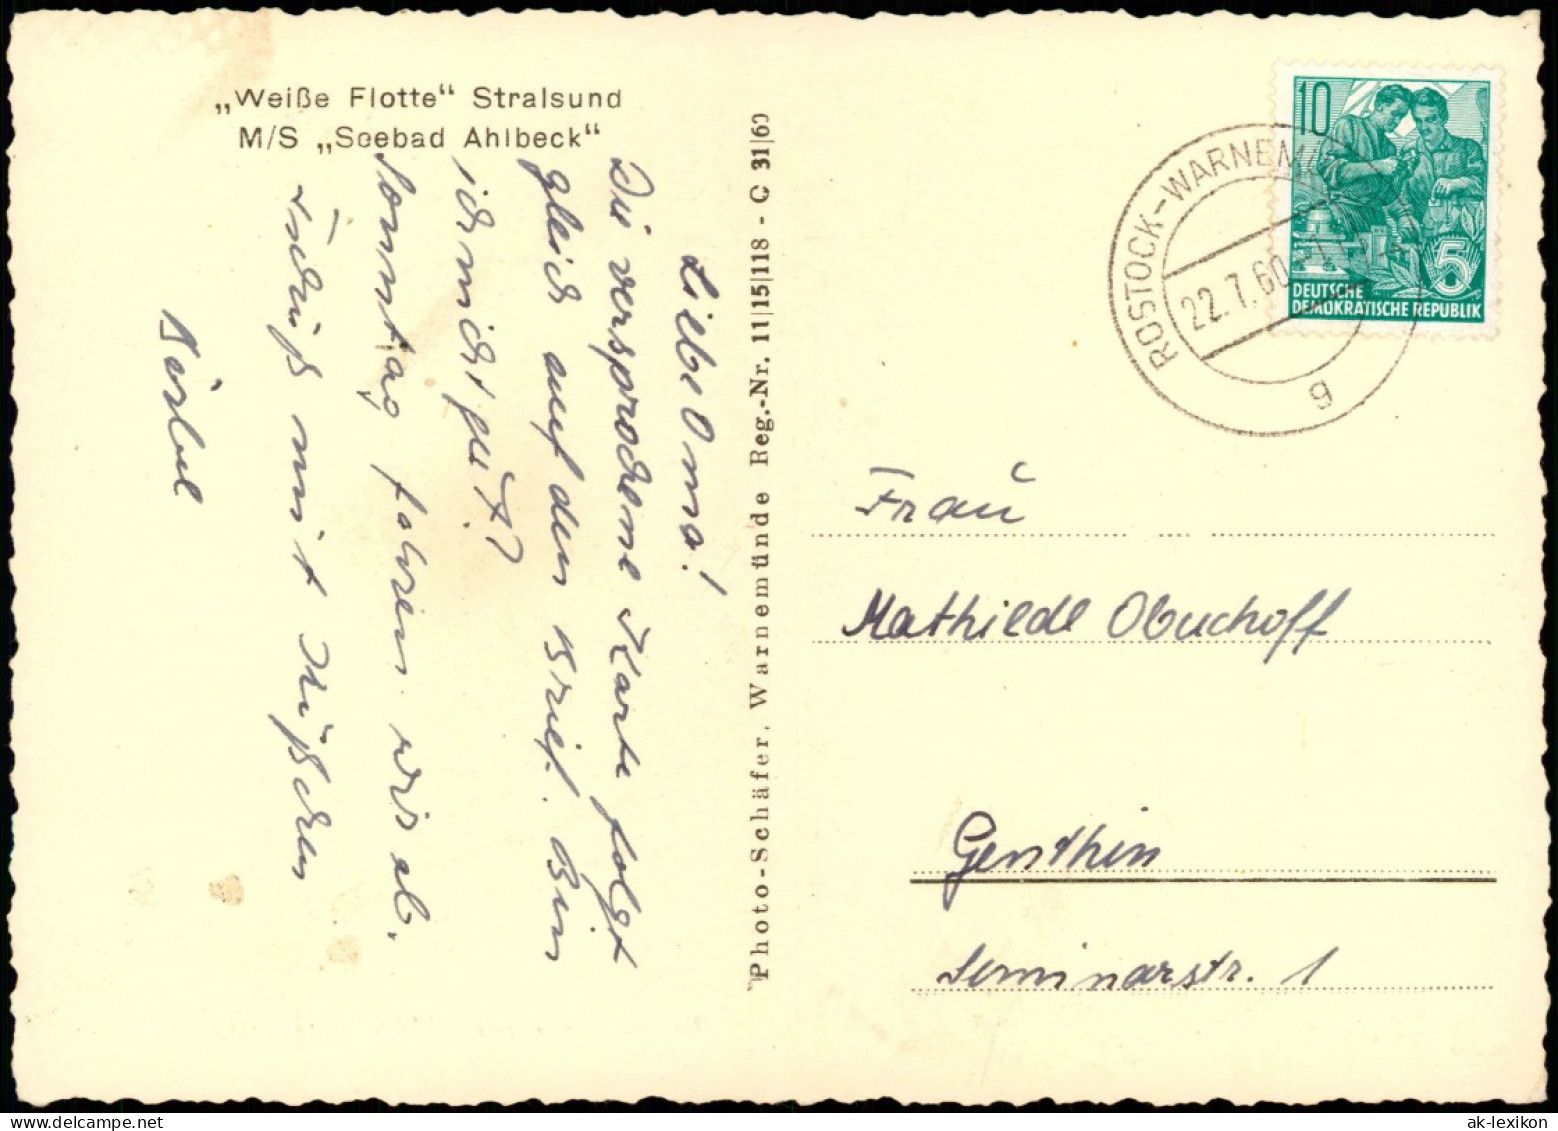 „Weiße Flotte“ Stralsund
M/S „Seebad Ahlbeck“
Liebe Oma!
Die versprochene Karte folgt
gleich auf den Brief. Bin
ich nicht gut?
Sonntag fahren wir ab.
Tschüß mit Küßchen
Bärbel
Photo-Schäfer, Warnemünde Reg.-Nr. 11|15|118 - C 31|60
10
5
DEUTSCHE
DEMOKRATISCHE REPUBLIK
ROSTOCK-WARNEMÜ
22.7.60
g
Frau
Mathilde Obuchoff
Genthin
Seminarstr. 1
ak-lexikon